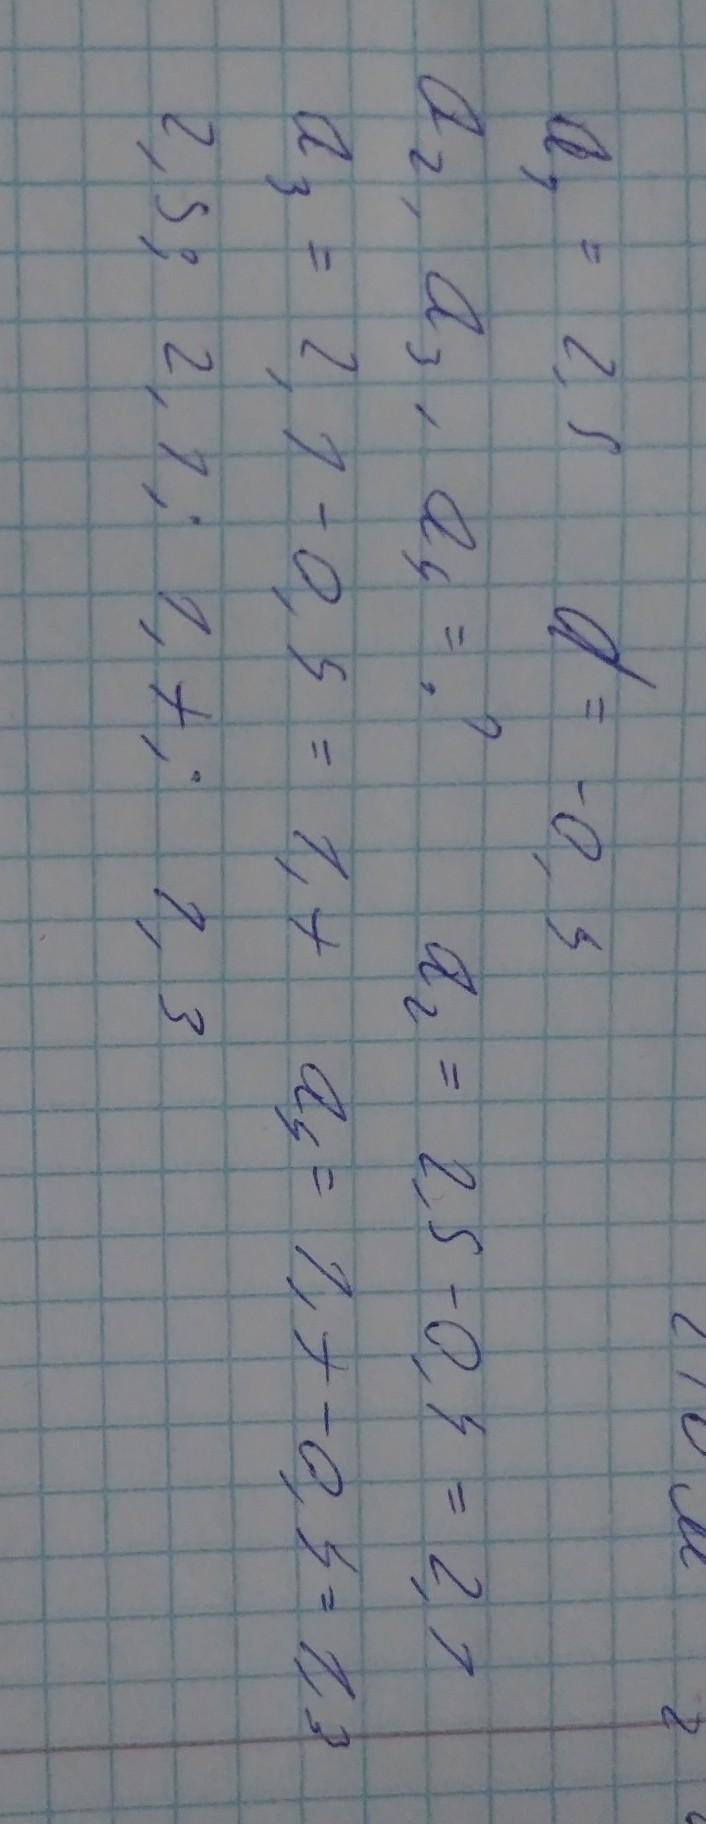 a₁ = 2,5 d = -0,4
a₂, a₃, a₄ = ? a₂ = 2,5 - 0,4 = 2,1
a₃ = 2,1 - 0,4 = 1,7 a₄ = 1,7 - 0,4 = 1,3
2,5; 2,1; 1,7; 1,3